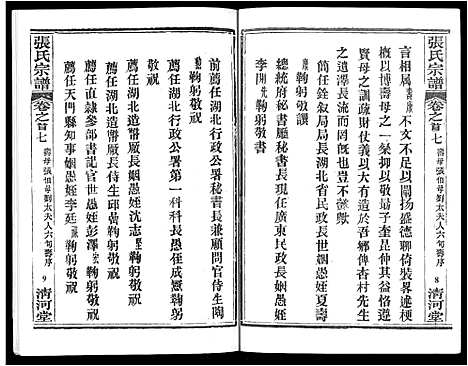 張氏宗譜
卷之首七
壽母張伯母劉太夫人六旬壽序
8
清河堂
言相属壽康不文不足以闡揚盛德聊倚裝畧述梗
概以博壽母之一粲抑以敬最子奎昆仲其益恪守
賢母之訓疏財仗義大有造於吾鄉俾杏村先生
之遺澤長流而不匱也豈不懿歟
簡任銓叙局局長湖北省民政長世愚姪夏壽康鞠躬敬祝
總統府秘書廳秘書長現任廣東民政長姻愚姪
李開侁鞠躬敬書
前薦任湖北行政公署秘書長兼顧問官侍生陶
鞠躬敬祝
薦任湖北行政公署第一科科長愚姪成變鞠躬
敬祝
薦任湖北造幣廠長姻愚姪沈志堅鞠躬敬祝
薦任湖北造幣廠長侍生邱黄鞠躬敬祝
薦任直隷參部書記官世愚姪彭澤鞠躬敬祝
薦任天門縣知事姻愚姪李廷鞠躬敬祝
張氏宗譜
卷之首七
壽母張伯母劉太夫人六旬壽序
9
清河堂